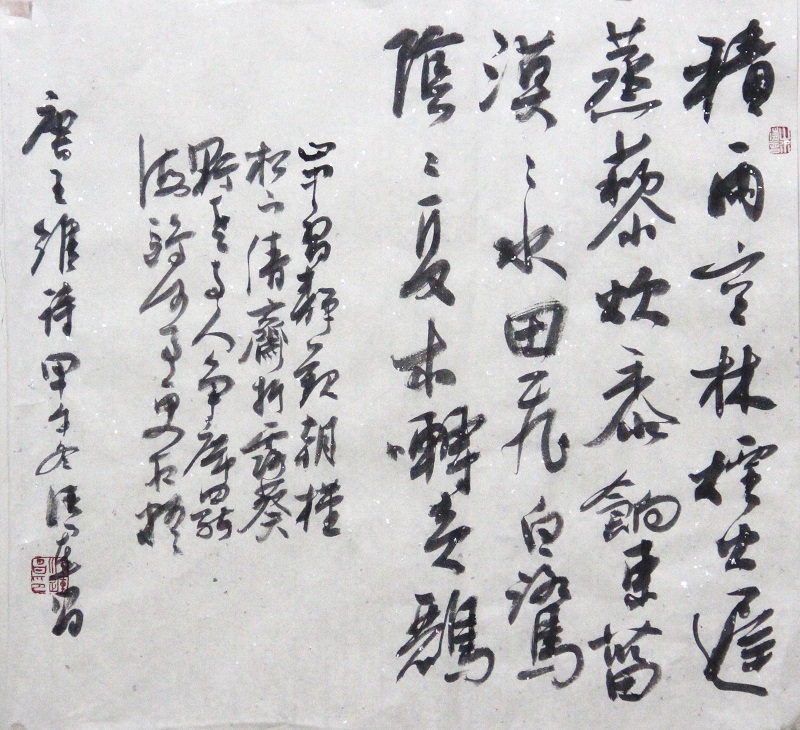 積雨空林煙火遲
蒸藜炊黍餉東菑
漠〻水田飛白鷺
陰〻夏木囀黃鸝
山中習靜觀朝槿
松下清齋折露葵
野老與人爭席罷
海鷗何事更相疑
唐王維詩甲午冬